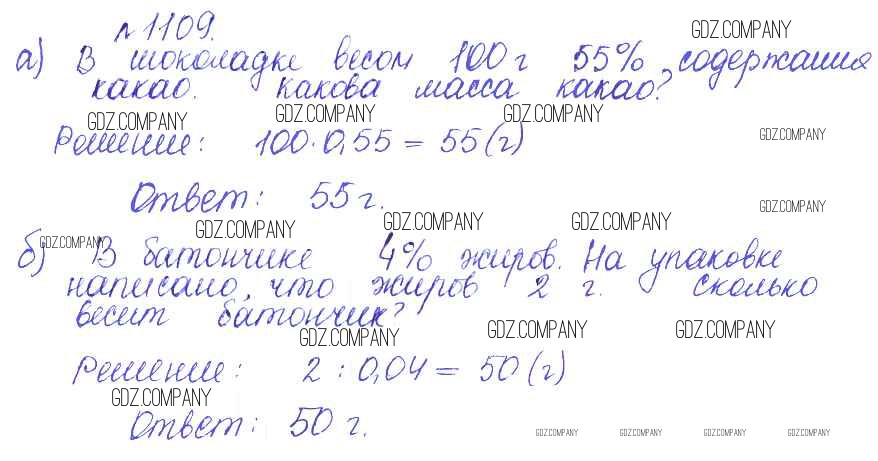 №1109.
GDZ.COMPANY
а) В шоколадке весом 100 г 55% содержания
какао. Какова масса какао?
GDZ.COMPANY GDZ.COMPANY GDZ.COMPANY
Решение: 100·0,55 = 55 (г)
GDZ.COMPANY
Ответ: 55 г.
GDZ.COMPANY
GDZ.COMPANY GDZ.COMPANY GDZ.COMPANY
GDZ.COMPANY
б) В батончике 4% жиров. На упаковке
написано, что жиров 2 г. Сколько
весит батончик?
GDZ.COMPANY GDZ.COMPANY GDZ.COMPANY
Решение: 2 : 0,04 = 50 (г)
GDZ.COMPANY
Ответ: 50 г.
GDZ.COMPANY GDZ.COMPANY GDZ.COMPANY GDZ.COMPANY